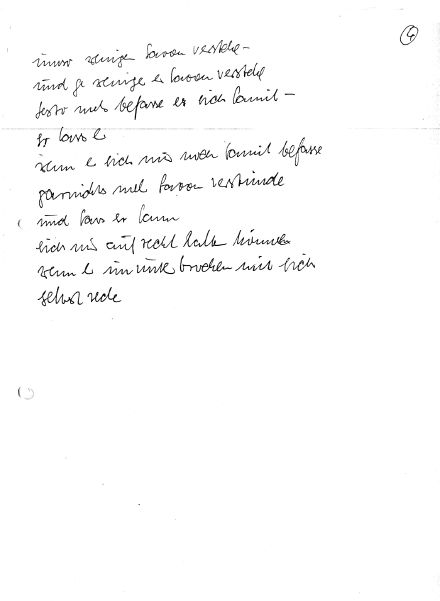 immer weniger davon verstehe –
und je weniger er davon verstehe
desto mehr befasse er sich damit –
er
wenn er sich nur noch damit befasse
garnichts mehr davon verstünde
und dass er dann
sich nur aufrecht halten könne
wenn er ununterbrochen mit sich
selbst rede